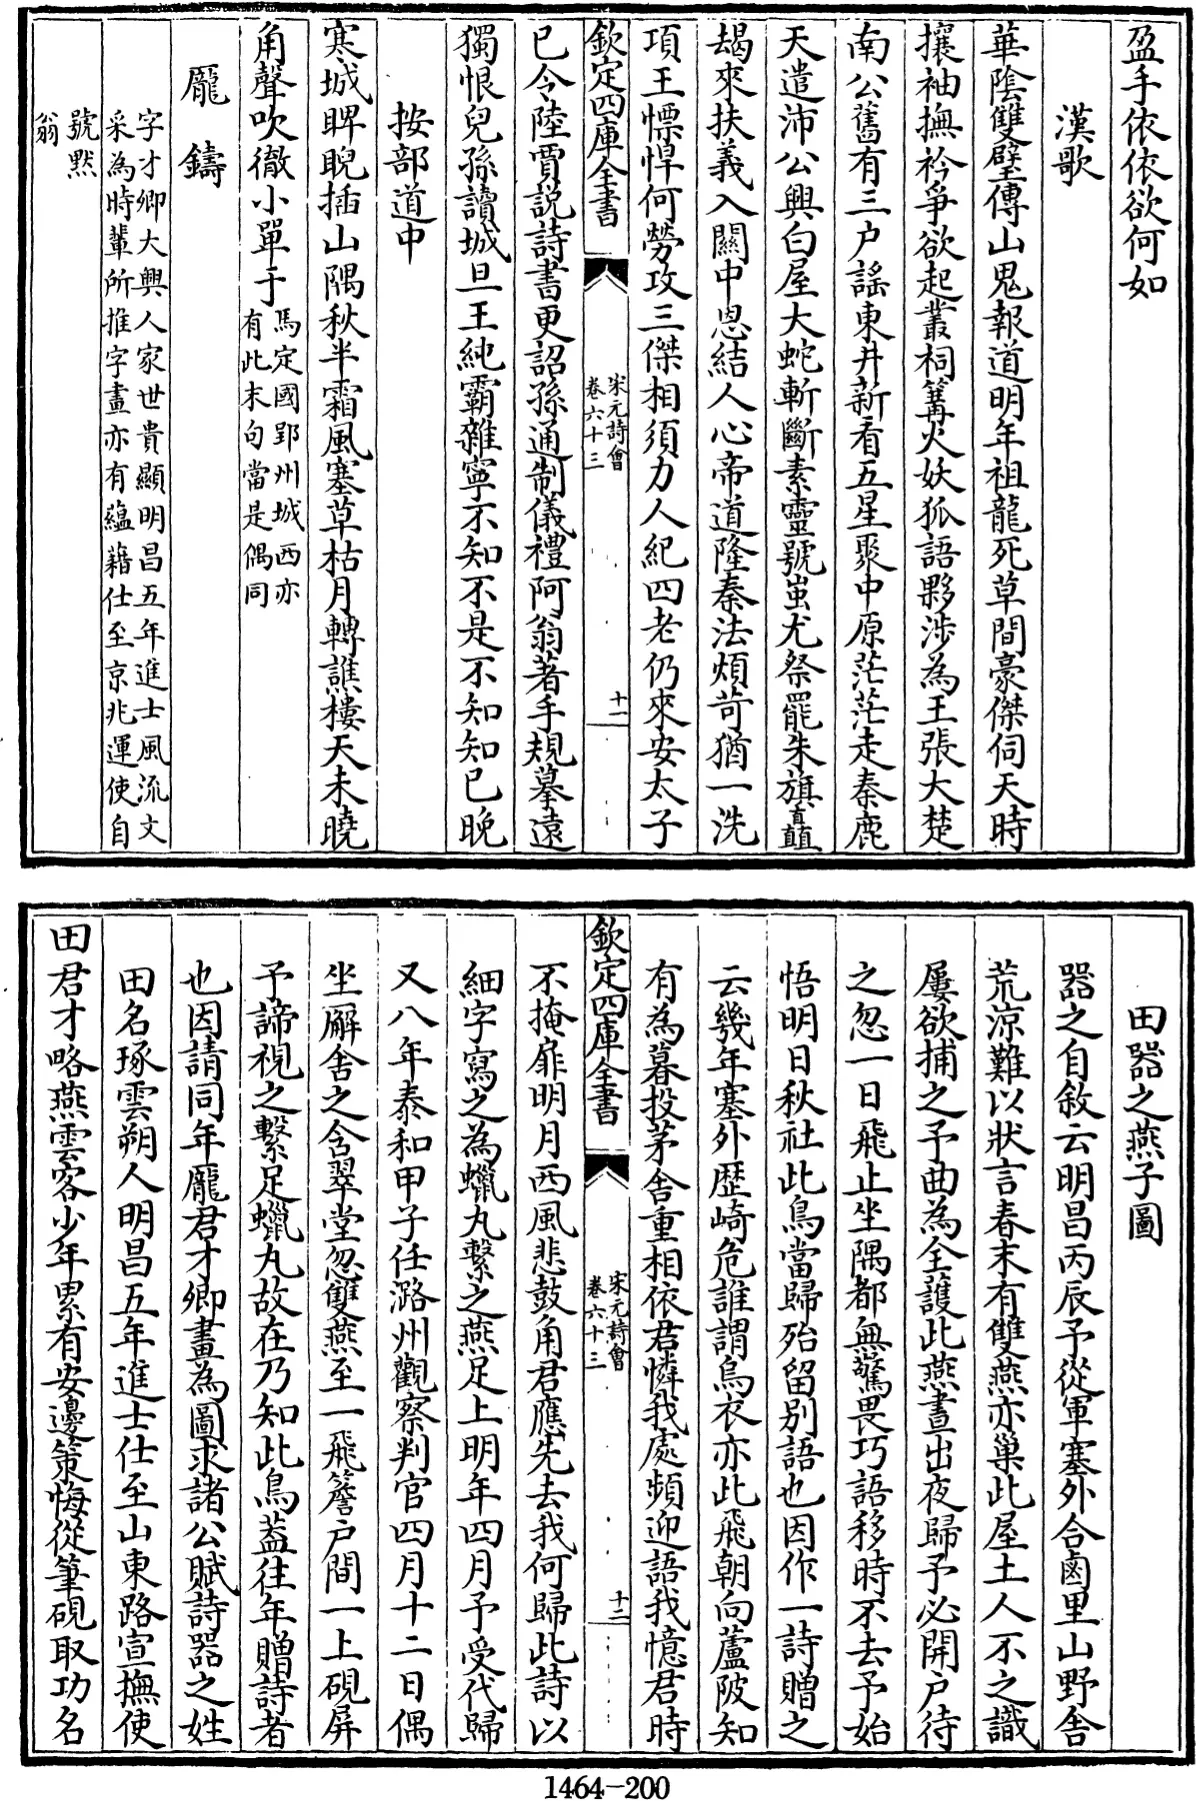 盈手依依欲何如
漢歌
華陰雙璧傳山鬼報道明年祖龍死草間豪傑伺天時
攘袖撫衿爭欲起叢祠篝火妖狐語夥涉為王張大楚
南公舊有三户謠東井新看五星聚中原茫茫走秦鹿
天遣沛公興白屋大蛇斬斷素靈號蚩尤祭罷朱旗矗
朅來扶義入關中恩結人心帝道隆秦法煩苛猶一洗
項王慓悍何勞攻三傑相須力人紀四老仍來安太子
欽定四庫全書
宋元詩會
卷六十三
十一
已令陸賈説詩書更詔孫通制儀禮阿翁著手規摹遠
獨恨兒孫讀城旦王純霸雜寧不知不是不知知已晚
按部道中
寒城睥睨插山隅秋半霜風塞草枯月轉譙樓天未曉
角聲吹徹小單于
馬定國郢州城西亦
有此末句當是偶同
龎鑄
字才卿大興人家世貴顯明昌五年進士風流文
采為時輩所推字畫亦有蘊藉仕至京兆運使自
號默
翁
田器之燕子圖
器之自敘云明昌丙辰予從軍塞外合鹵里山野舎
荒涼難以狀言春末有雙燕亦巢此屋土人不之識
屢欲捕之予曲為全護此燕晝出夜歸予必開户待
之忽一日飛止坐隅都無驚畏巧語移時不去予始
悟明日秋社此鳥當歸殆留别語也因作一詩贈之
云幾年塞外歴崎危誰謂烏衣亦此飛朝向蘆陂知
有為暮投茅舎重相依君憐我處頻迎語我憶君時
欽定四庫全書
宋元詩會
卷六十三
十二
不掩扉明月西風悲鼓角君應先去我何歸此詩以
細字寫之為蠟丸繫之燕足上明年四月予受代歸
又八年泰和甲子任潞州觀察判官四月十二日偶
坐廨舎之含翠堂忽雙燕至一飛簷户間一上硯屏
予諦視之繫足蠟丸故在乃知此鳥蓋往年贈詩者
也因請同年龎君才卿畫為圖求諸公賦詩器之姓
田名琢雲朔人明昌五年進士仕至山東路宣撫使
田君才略燕雲客少年累有安邊策悔從筆硯取功名
1464-200